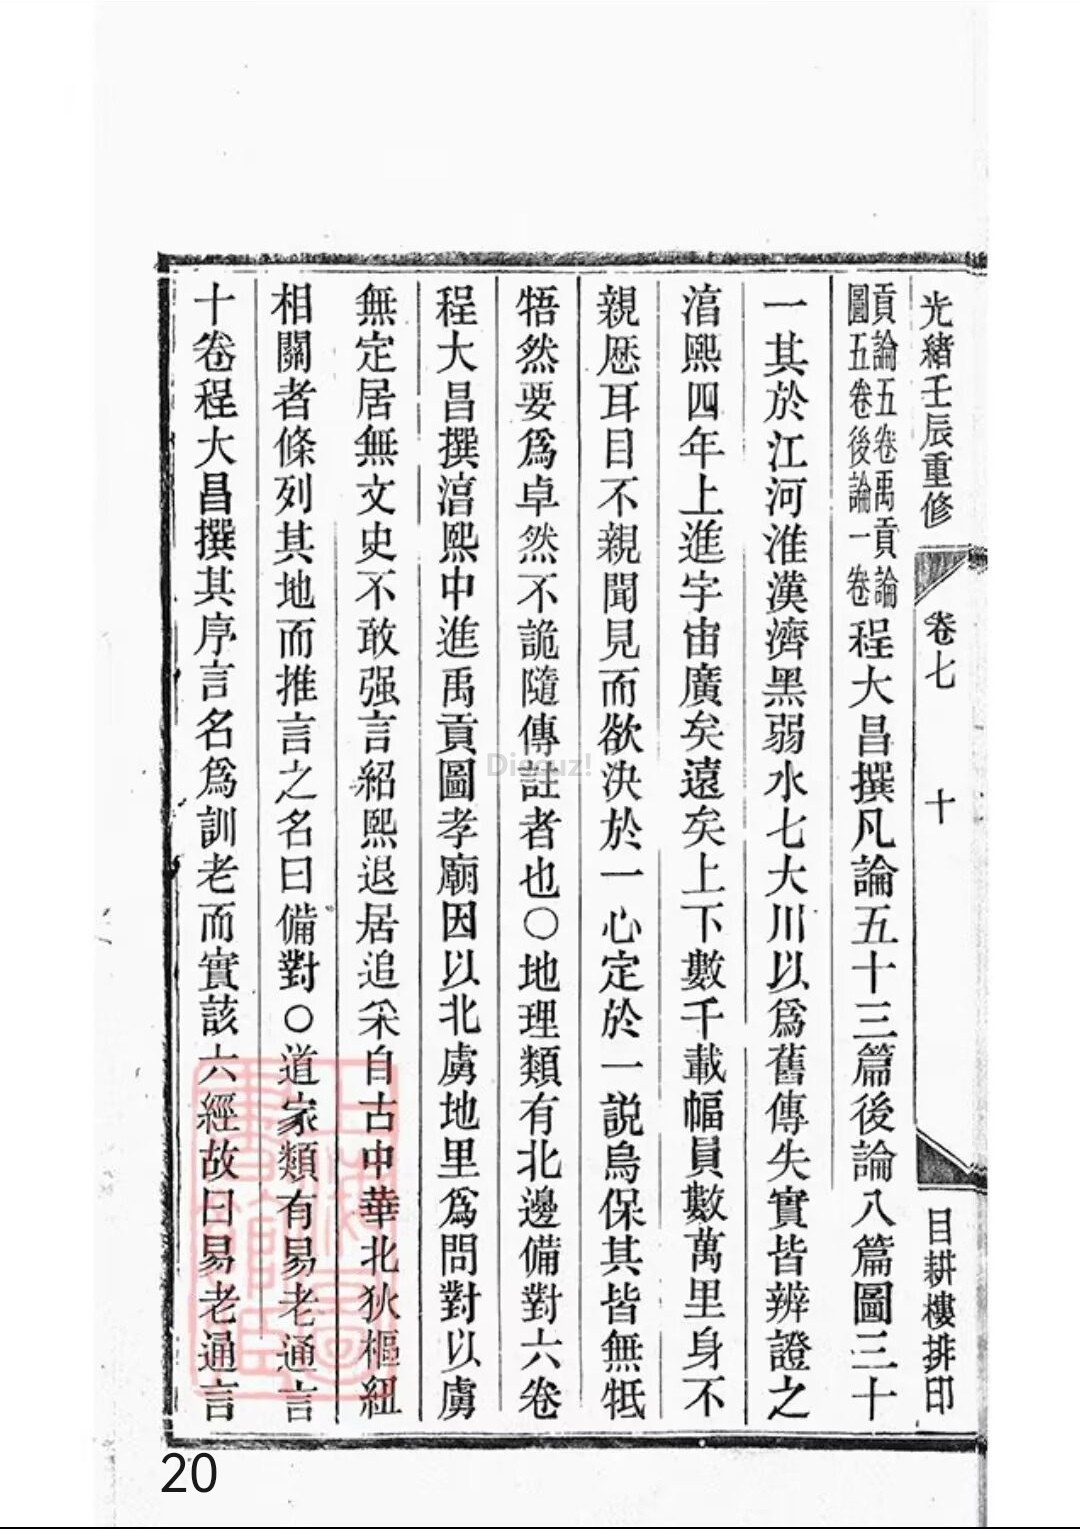 光緒壬辰重修
卷七
十
目耕樓排印
貢論五卷禹貢論
圖五卷後論一卷
程大昌撰凡論五十三篇後論八篇圖三十
一其於江河淮漢濟黑弱水七大川以爲舊傳失實皆辨證之
淳熙四年上進宇宙廣矣遠矣上下數千載幅員數萬里身不
親歷耳目不親聞見而欲決於一心定於一説烏保其皆無牴
牾然要爲卓然不詭隨傳註者也〇地理類有北邊備對六卷
程大昌撰淳熙中進禹貢圖孝廟因以北虜地里爲問對以虜
無定居無文史不敢强言紹熙退居追采自古中華北狄樞紐
相關者條列其地而推言之名曰備對〇道家類有易老通言
十卷程大昌撰其序言名爲訓老而實該六經故曰易老通言
Discuz!
20